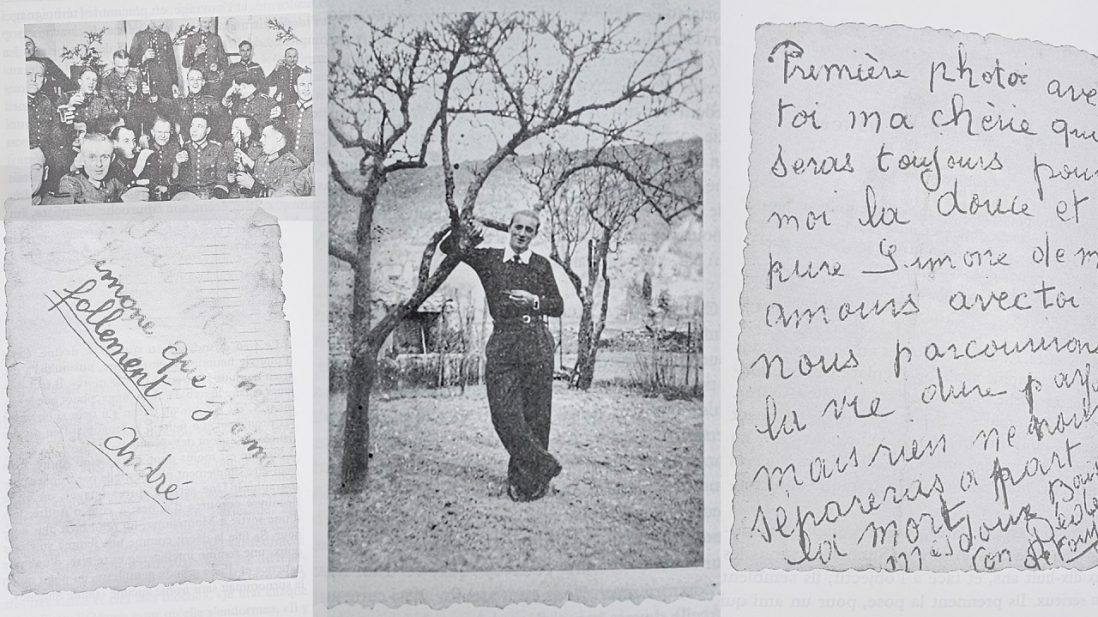 imone que j
follement
André
Première photoi ave
toi ma chèrie qui
seras toujours pour
moi la douce et
pure Simone de m
amours avec toi
nous parcourrons
la vie dure
mais rien ne nou
separeras a part
la mort
Mes doux